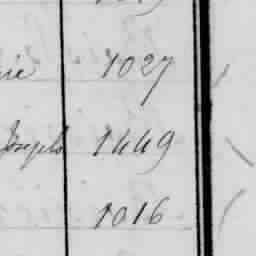 1027
Joseph 1449
1016